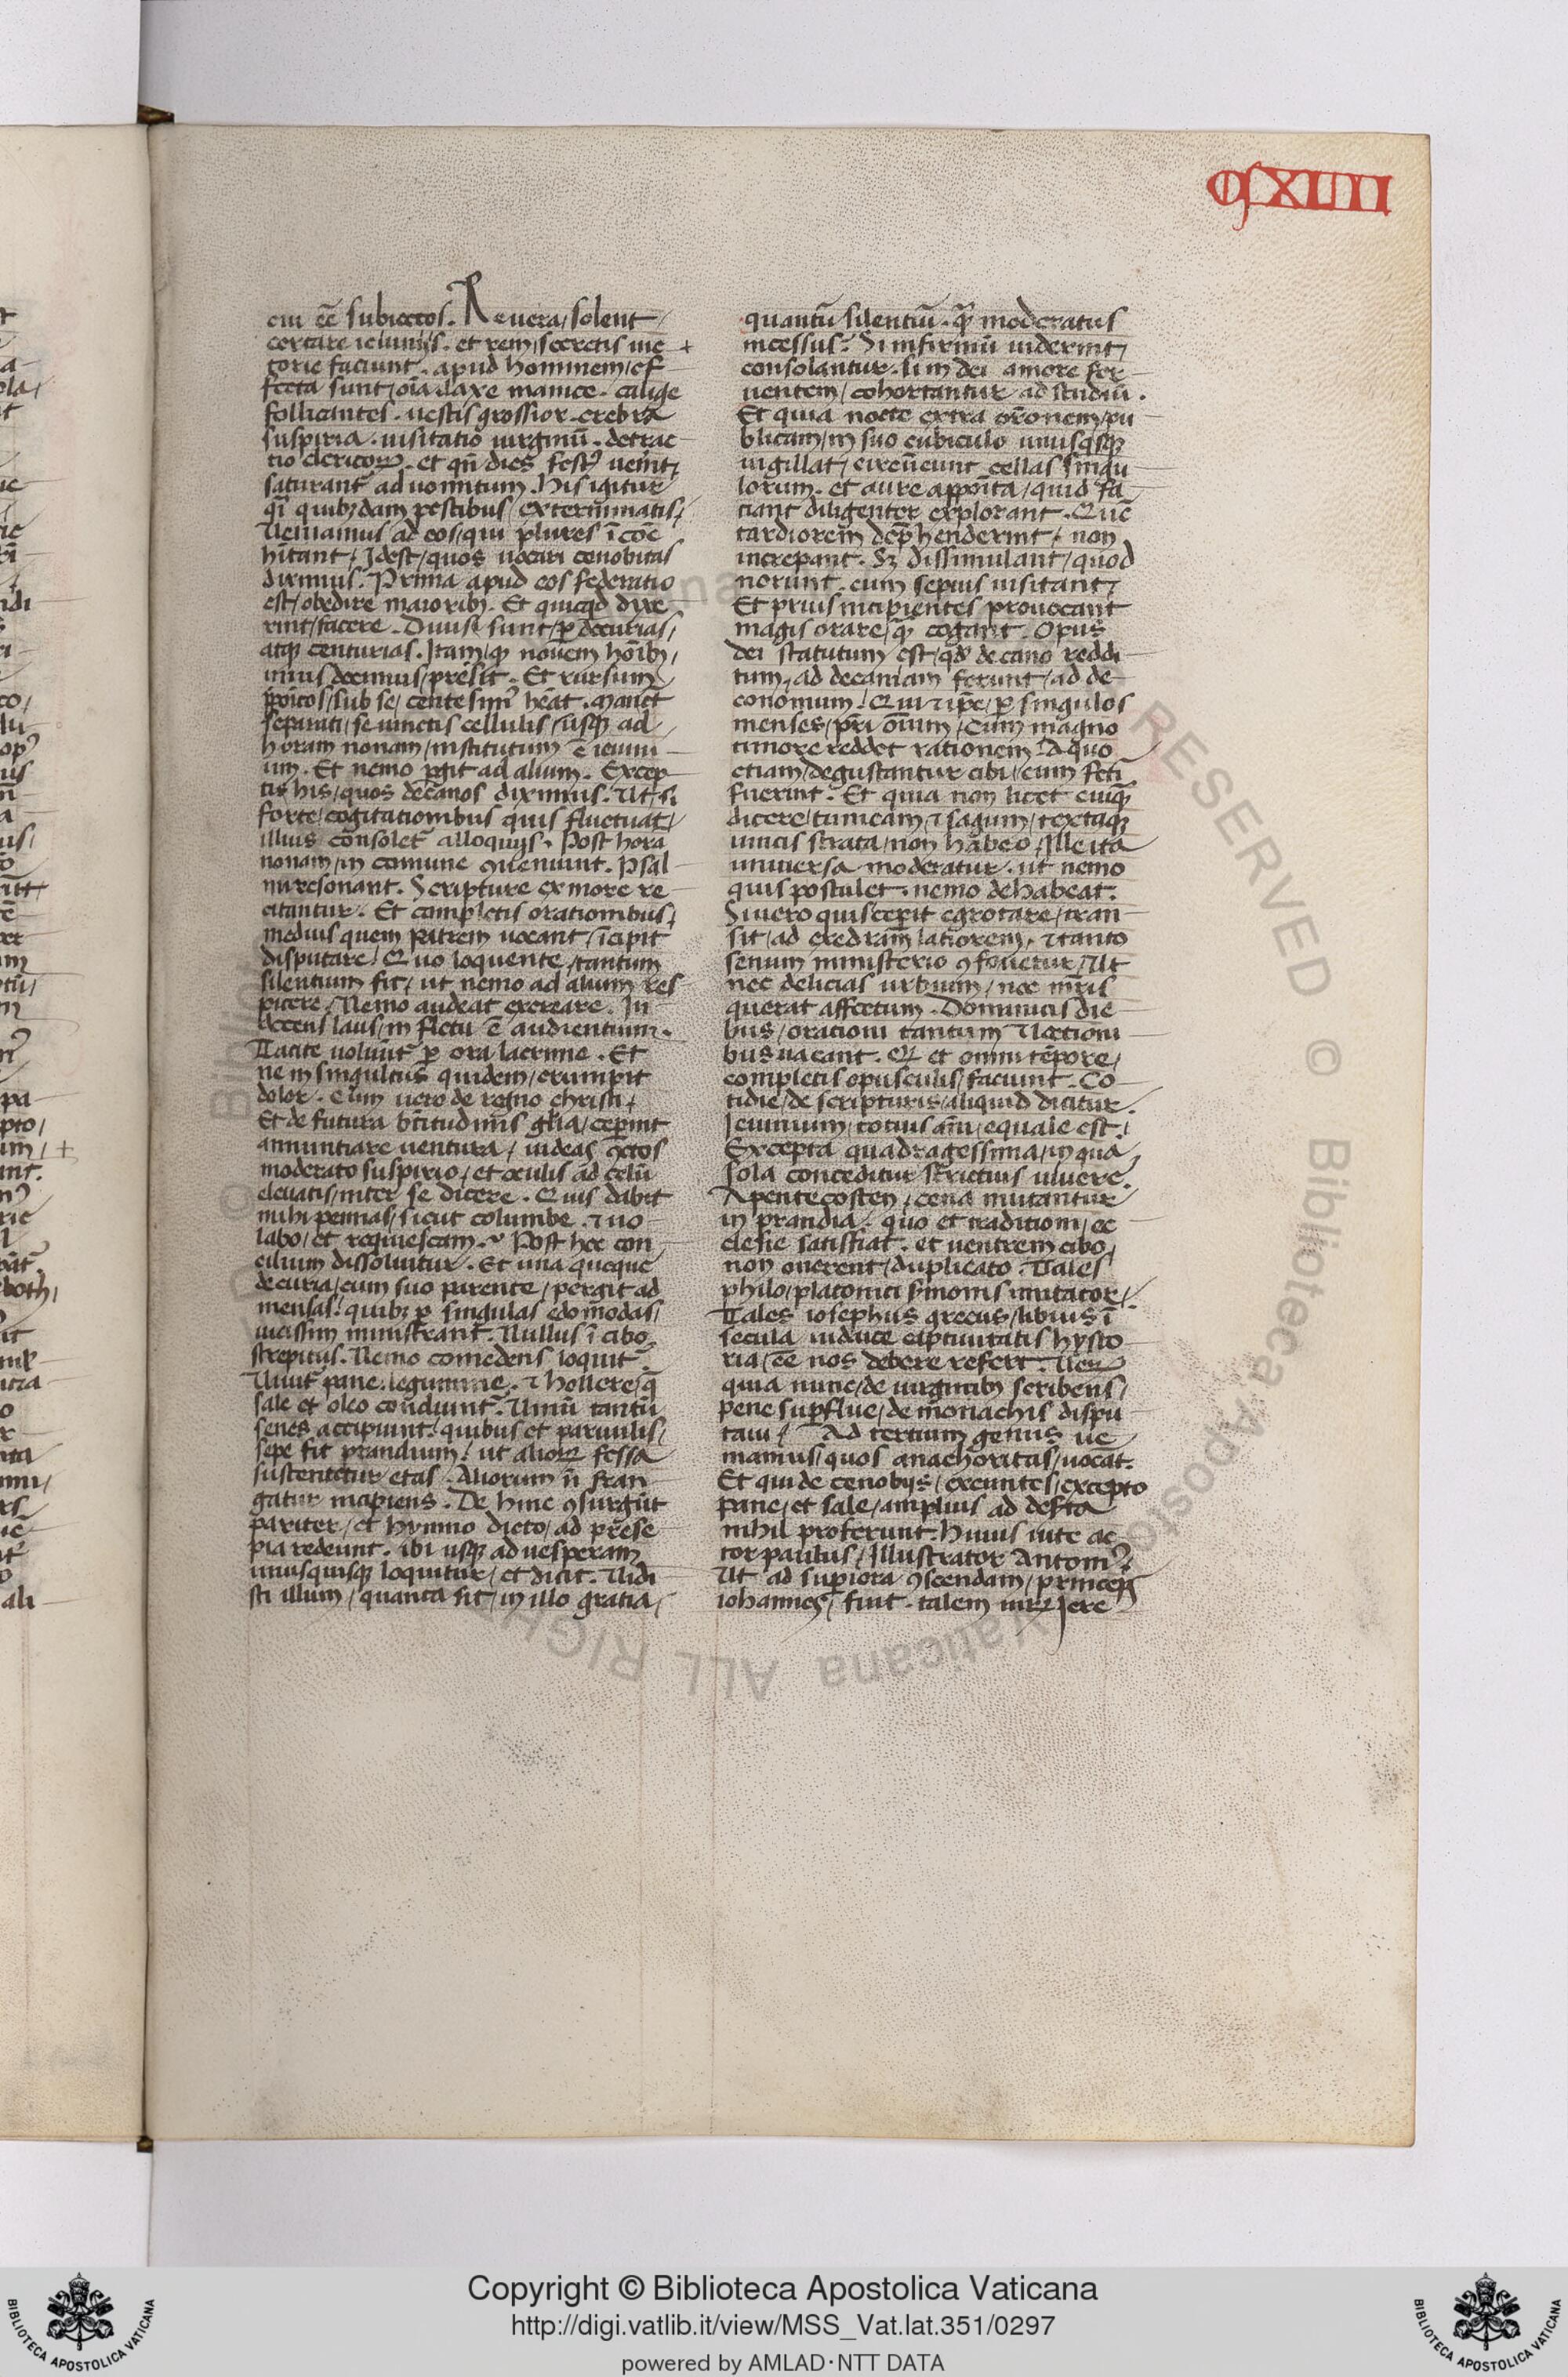 CXLIII
cui eē subiectos. Reuera/solent
certare ieiunijs. et rem/secretis uic
torie faciunt. apud hominem/ef
fecta sunt/oīa. laxe manice. calige
follicantes. uestis grossior. crebra
suspiria. uisitatio uirginū. detrac
tio clericoꝝ. et qn̄ dies fest9 ueīt/
saturant̄ ad uomitum. His igitur
q̄i quibꝫdam pestibus/exterminatis/
Ueniamus ad eos/qui plures ī cōē
hītant/ Idest/quos uocari cenobitas
diximus. Prima apud eos federatio
est/obedire maioribꝫ. Et quicqd dixe
rint/facere. Diuisi sunt/ꝑ decurias/
atqꝫ centurias. Itam/qꝫ nouem hoībꝫ/
unus decimus/presit. Et rursum
ꝓpoītos/sub se/centesim9 hēat. Manēt
separati/se iunctis cellulis/usqꝫ ad
horam nonam/institutum ē ieiuni
um. Et nemo ꝑgit ad alium. Excep
tis his/quos decanos diximus. Ut/si
forte/cogitationibus quis fluctuat/
illius consolet̄ alloquijs. Post horā
nonam/in comune ꝯueniunt. Psal
mi resonant. Scripture ex more re
citantur. Et completis orationibus/
medius quem patrem uocant/īcipit
disputare/ Quo loquente/tantum
silentium fit/ ut nemo ad alium res
picere/ Nemo audeat excreare. In
decens laus/in fletu ē audientium.
Tacite uoluūt̄ ꝑ ora lacrime. Et
ne in singultus quidem/erumpit
dolor. Cum uero de regno christi/
Et de futura bt̄itudinis gl̄ia/ceperint
annuntiare uentura/ uideas ꝯctos
moderato suspirio/et oculis ad celū
eleuatis/inter se dicere. Quis dabit
mihi pennas/sicut columbe. ⁊ uo
labo/et requiescam. Post hec con
cilium dissoluitur. Et una queque
decuria/cum suo parente/pergit ad
mensas/ quibꝫ ꝑ singulas edomodas/
uicissim ministrant̄. Nullus ī cibo
strepitus. Nemo comedens loquit̄.
Uiuit̄ pane. legumine. ⁊ hollere/q̄
sale et oleo condiunt̄. Uinū tantū
senes accipiunt/quibus et paruulis/
sepe fit prandium/ ut alioꝝ fessa
sustentetur etas. Aliorum n̄ fran
gatur incipiens. De hinc ꝯsurgūt
pariter/et hymno dicto/ad prese
pia redeunt. ibi usqꝫ ad uesperam
unusquisqꝫ loquitur/et dicit. Uidi
sti illum/quanta sit/in illo gratia/
quantū silentiū. qꝫ moderatus
incessus/ Si infirmū uiderint/
consolantur. si in dei amore fer
uentem/cohortantur ad studiū.
Et quia nocte extra orōnem/pu
blicam/in suo cubiculo unusqsqꝫ
uigillat/circūeunt cellas singu
lorum. et aure appoīta/quid fa
ciant diligenter explorant. Quē
tardiorem dep̄henderint/ non
increpant. Sꝫ dissimulant/quod
norunt. cum sepius uisitant/
Et prius incipientes prouocant
magis orare/qꝫ cogant. Opus
dei statutum est/qd̄ decano reddi
tum/ad decaniam ferunt/ad de
conomum/ Qui ⁊ ip̄e/ꝑ singulos
menses/pr̄i oīum/Cum magno
timore reddet rationem/ A quo
etiam/degustantur cibi/cum fcti
fuerint. Et quia non licet cuiqꝫ
dicere/tunicam/⁊ sagum/textaqꝫ
iuncis strata/non habeo/Ille ita
uniuersa moderatur. ut nemo
quis postulet. nemo dehabeat.
Si uero quis ceperit egrotare/tran
sit/ad exedram latiorem. ⁊ tanto
senum ministerio ꝯfouetur/Ut
nec delicias urbium/nec mr̄is
querat affectum. Dominicis die
bus/orationi tantum ⁊ lectioni
bus uacant. Qꝫ et omni tēpore/
completis opusculis/faciunt. Co
tidie/de scripturis/aliquid dicitur.
Ieiunium/totius anī/equale est/
Excepta quadragessima/in qua/
sola conceditur strictius uiuere.
A pentecosten/cena mutantur
in prandia. quo et traditioni/ec
clesie satisfiat. et uentrem cibo/
non onerent/duplicato. Tales
philo/platonici s̄monis imitator/
Tales iosephus grecus/libius ī
secula iudaice captiuitatis hysto
ria/eē nos debere refert. Ueꝝ
quia nunc/de uirginibꝫ scribens/
pene suꝑflue/de monachis dispu
taui/ Ad tertium genus ue
niamus/quos anachoritas/uocāt.
Et qui de cenobijs/exeuntes/excepto
pane/et sale/amplius ad deserta
nihil proferunt. Huius uite ac
tor paulus/Illustrator Antoni9.
Ut ad suꝑiora ꝯscendam/princeps
iohannes/fuit. talem uiꝝ Iere